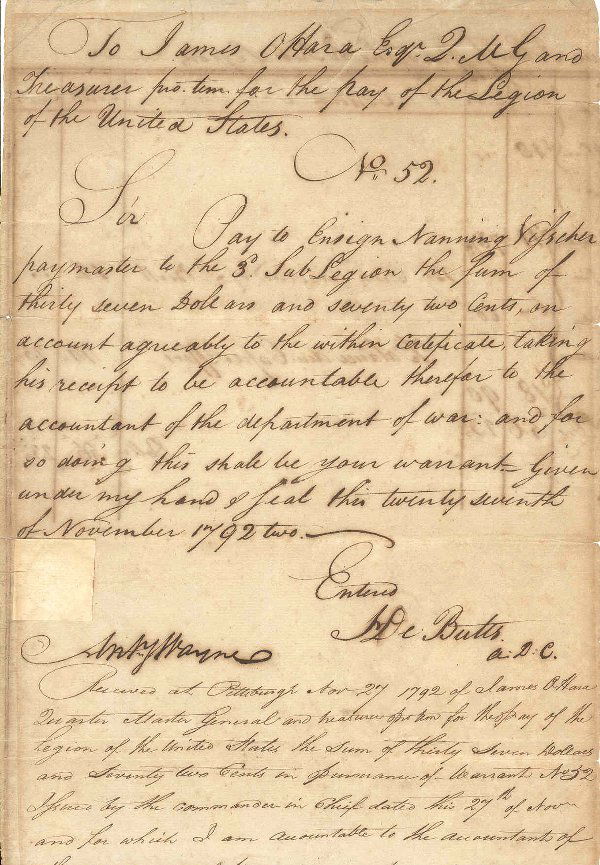 To James OHara Esqr. Q. M G and
Treasurer pro. tem. for the pay of the Legion
of the United States.
No 52.
Sir
Pay to Ensign Nanning Visscher
paymaster to the 3d. Sub Legion the Sum of
thirty seven Dollars and seventy two Cents, on
account agreeably to the within Certificate, taking
his receipt to be accountable therefor to the
accountant of the department of war: and for
so doing this shall be your warrant – Given
under my hand & Seal this twenty seventh
of November 1792 two.
Entered
H De Butts
a. D. C.
Anty Wayne
Received at Pittsburgh Nov 27 1792 of James OHara
Quarter Master General and treasurer pro tem for the Pay of the
Legion of the United States the Sum of thirty Seven Dollars
and Seventy two Cents in pursuance of Warrant No 52
Issued by the commander in Chief dated this 27th of Nov
and for which I am accountable to the accountants of